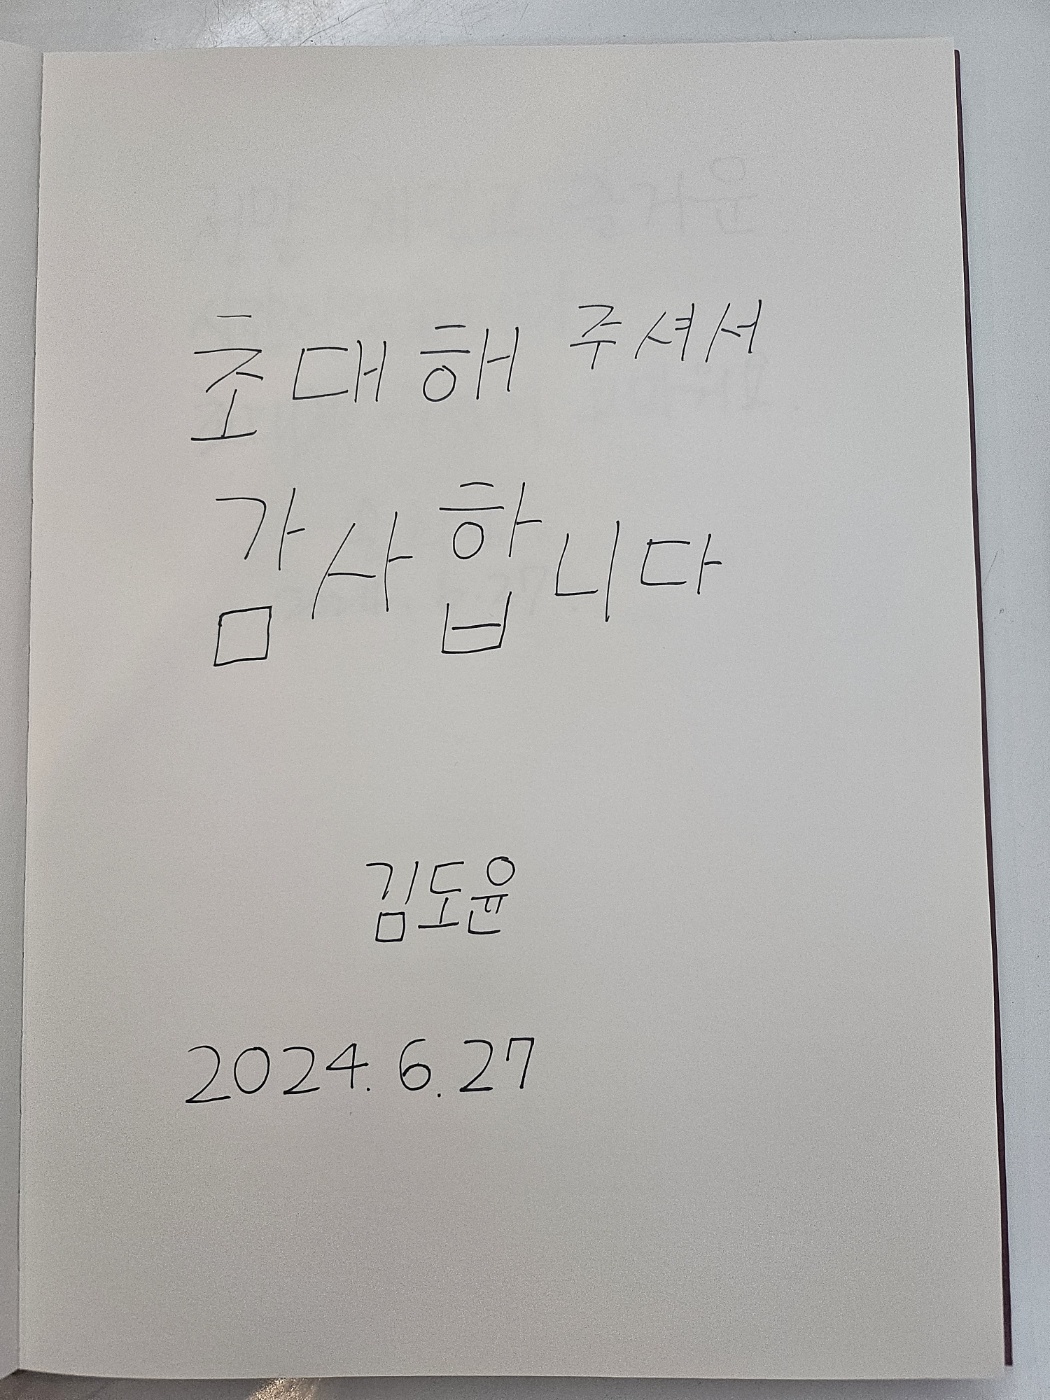 초대해 주셔서
감사합니다
김도윤
2024. 6. 27